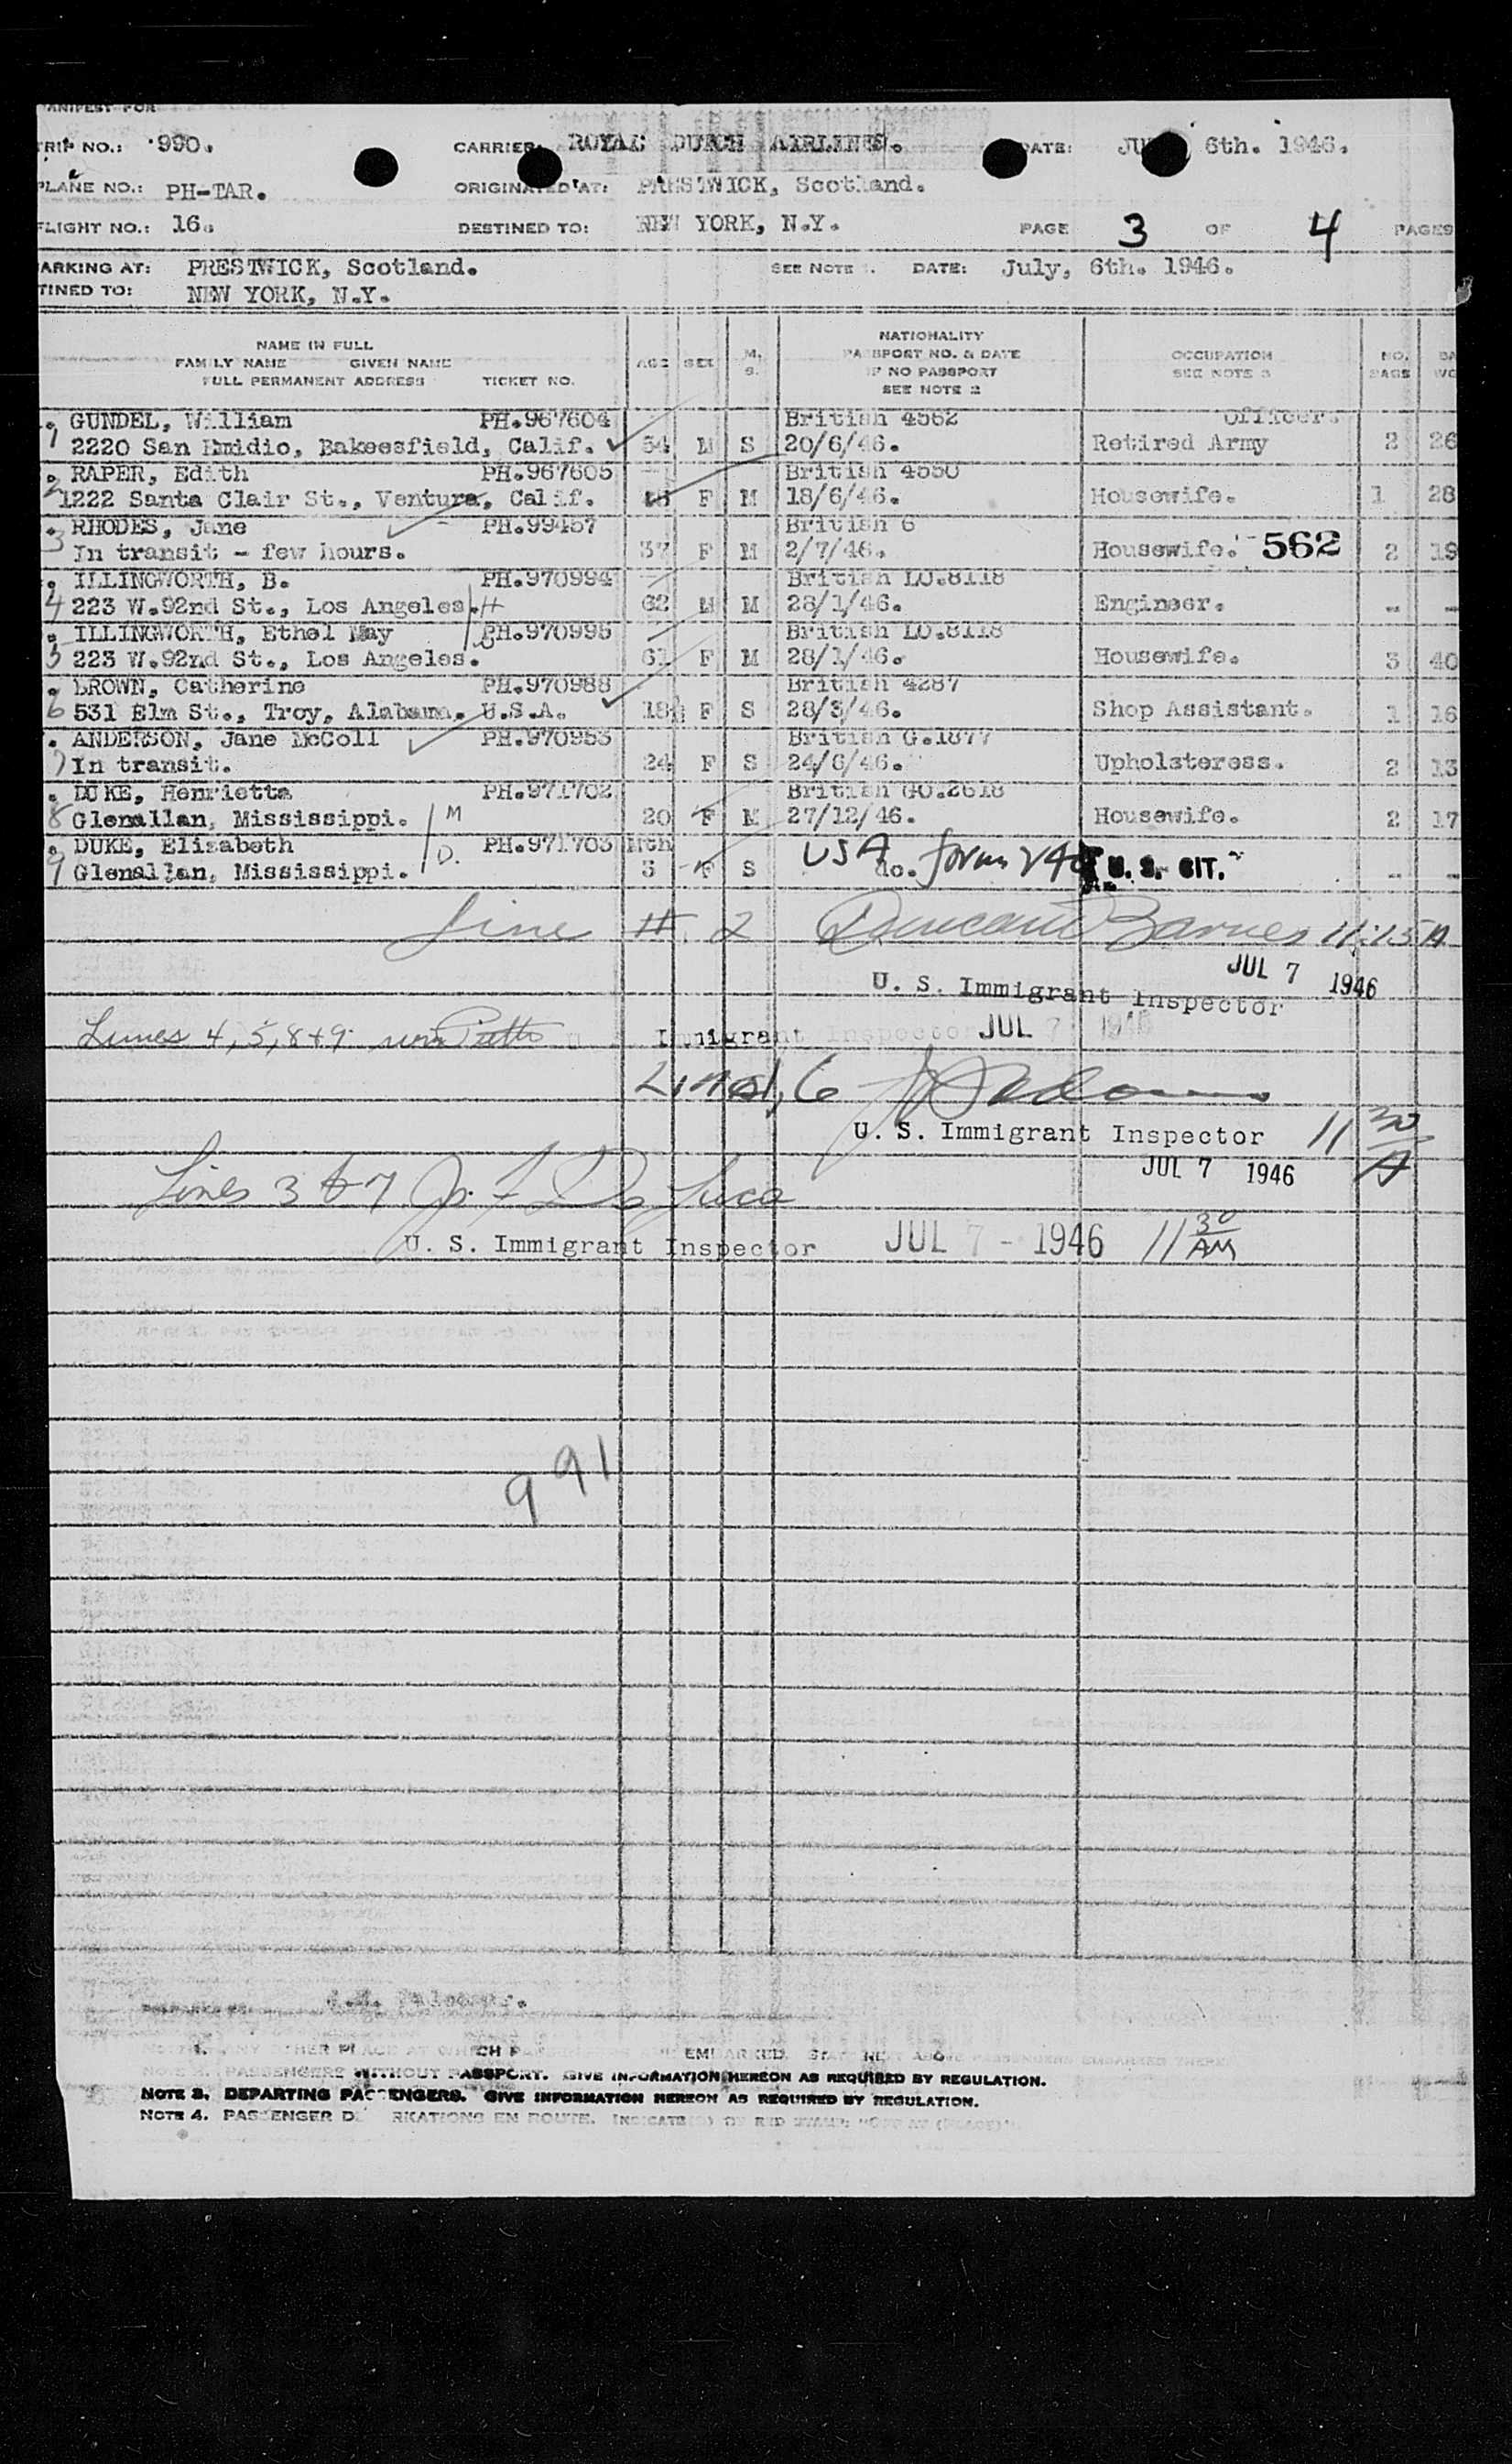 ANIFEST FOR
TRIP NO.: 990. CARRIER: ROYAL DUTCH AIRLINES. DATE: 6th. 1946.
PLANE NO.: PH-TAR. ORIGINATED AT: PRESTWICK, Scotland.
FLIGHT NO.: 16. DESTINED TO: NEW YORK, N.Y. PAGE 3 OF 4 PAGES
ARKING AT: PRESTWICK, Scotland. SEE NOTE 1. DATE: July, 6th. 1946.
TINED TO: NEW YORK, N.Y.
NAME IN FULL
FAMILY NAME GIVEN NAME
FULL PERMANENT ADDRESS TICKET NO.
AGE SEX M. S.
NATIONALITY
PASSPORT NO. & DATE
IF NO PASSPORT
SEE NOTE 2
OCCUPATION
SEE NOTE 3
NO. BAGS
1 GUNDEL, William PH.967604 British 4562 Officer.
2220 San Emidio, Bakeesfield, Calif. 54 M S 20/6/46. Retired Army 2 26
2 RAPER, Edith PH.967605 British 4550
1222 Santa Clair St., Ventura, Calif. F M 18/6/46. Housewife. 1 28
3 RHODES, Jane PH.99457 British 6
In transit - few hours. 37 F M 2/7/46. Housewife. 562 2 19
4 ILLINGWORTH, B. PH.970994 British LO.8118
223 W.92nd St., Los Angeles. H 62 M M 28/1/46. Engineer. - -
5 ILLINGWORTH, Ethel May PH.970995 British LO.8118
223 W.92nd St., Los Angeles. 61 F M 28/1/46. Housewife. 3 40
6 BROWN, Catherine PH.970988 British 4287
531 Elm St., Troy, Alabama. U.S.A. 18 F S 28/3/46. Shop Assistant. 1 16
7 ANDERSON, Jane McColl PH.970953 British G.1877
In transit. 24 F S 24/6/46. Upholsteress. 2 13
8 DUKE, Henrietta PH.971702 British GO.2618
Glenallan, Mississippi. M 20 F M 27/12/46. Housewife. 2 17
9 DUKE, Elizabeth D. PH.971703 Mth USA
Glenallan, Mississippi. 3 F S do. form 240 U. S. CIT. - -
Line # 2 Duncan Barnes 11:15 A
JUL 7 1946
U. S. Immigrant Inspector
Lines 4, 5, 8 + 9 Immigrant Inspector JUL 7 1946
Lines 1, 6
U. S. Immigrant Inspector 11 30 A
JUL 7 1946
Lines 3 & 7 De Luca
U. S. Immigrant Inspector JUL 7 - 1946 11 30 AM
991
NOTE 1. ANY OTHER PLACE AT WHICH PASSENGERS EMBARKED. STATE NEXT ABOVE PASSENGERS EMBARKED THERE
NOTE 2. PASSENGERS WITHOUT PASSPORT. GIVE INFORMATION HEREON AS REQUIRED BY REGULATION.
NOTE 3. DEPARTING PASSENGERS. GIVE INFORMATION HEREON AS REQUIRED BY REGULATION.
NOTE 4. PASSENGER D RKATIONS EN ROUTE. INDICATE